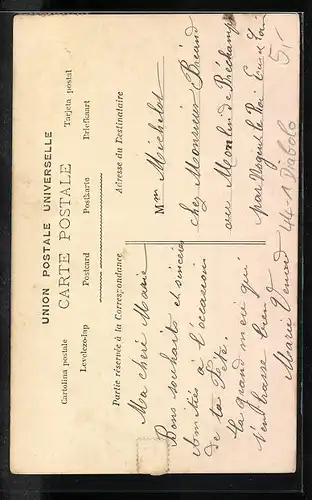 UNION POSTALE UNIVERSELLE
CARTE POSTALE
Cartolina postale Postcard Postkarte Briefkaart Tarjeta postal
Levelezo-lap
Partie réservée à la Correspondance
Adresse du Destinataire
Ma chérie Marie
Bons souhaits et sincères
Amitiés à l'occasion
de ta Fête.
ta grand mère qui
t'embrasse bien
Marie Venard
Mme Michelot
chez Monsieur
au Moulin de Préchamps
par Nogent le Roi Eure et Loir
44-1 Diabolo
5,-